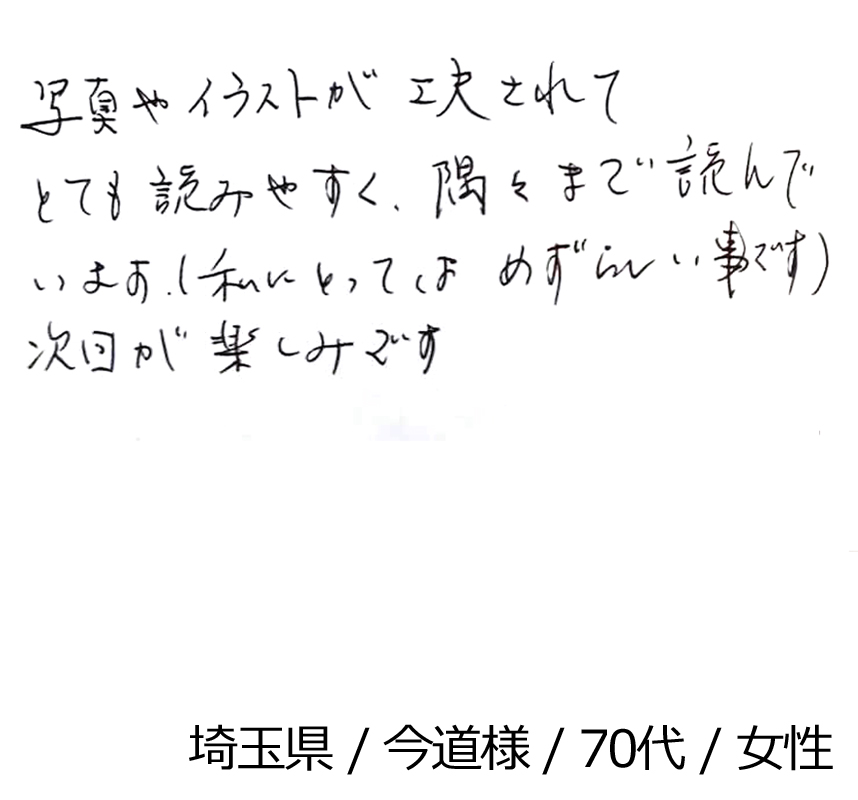 写真やイラストが工夫されて
とても読みやすく、隅々まで読んで
います。(私にとっては めずらしい事です)
次回が楽しみです
埼玉県 / 今道様 / 70代 / 女性